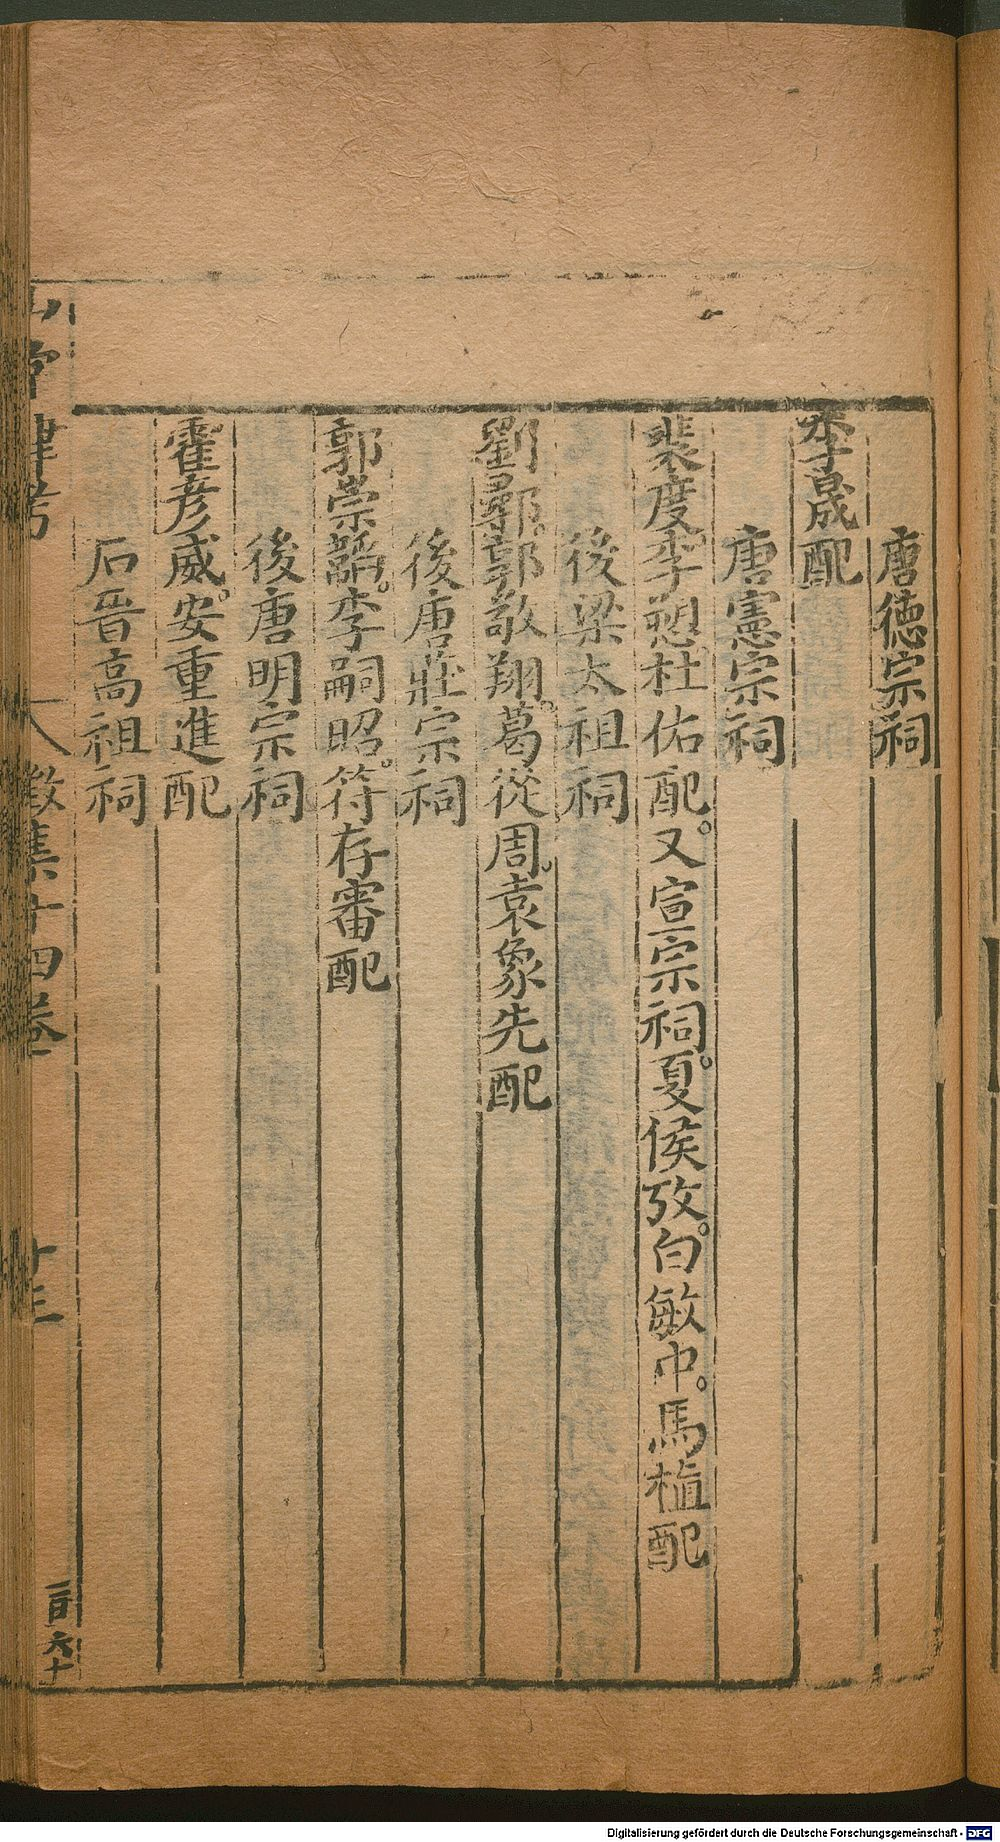 唐德宗祠
李晟配
唐憲宗祠
裴度。李愬。杜佑配。又宣宗祠。夏侯孜。白敏中。馬植配
後梁太祖祠
劉鄩。郭敬翔。葛從周。袁象先配
後唐莊宗祠
郭崇韜。李嗣昭。符存審配
後唐明宗祠
霍彥威。安重進配
后晋高祖祠
山堂肆考
徵集十四卷
十三
三百六十
Digitalisierung gefördert durch die Deutsche Forschungsgemeinschaft - DFG